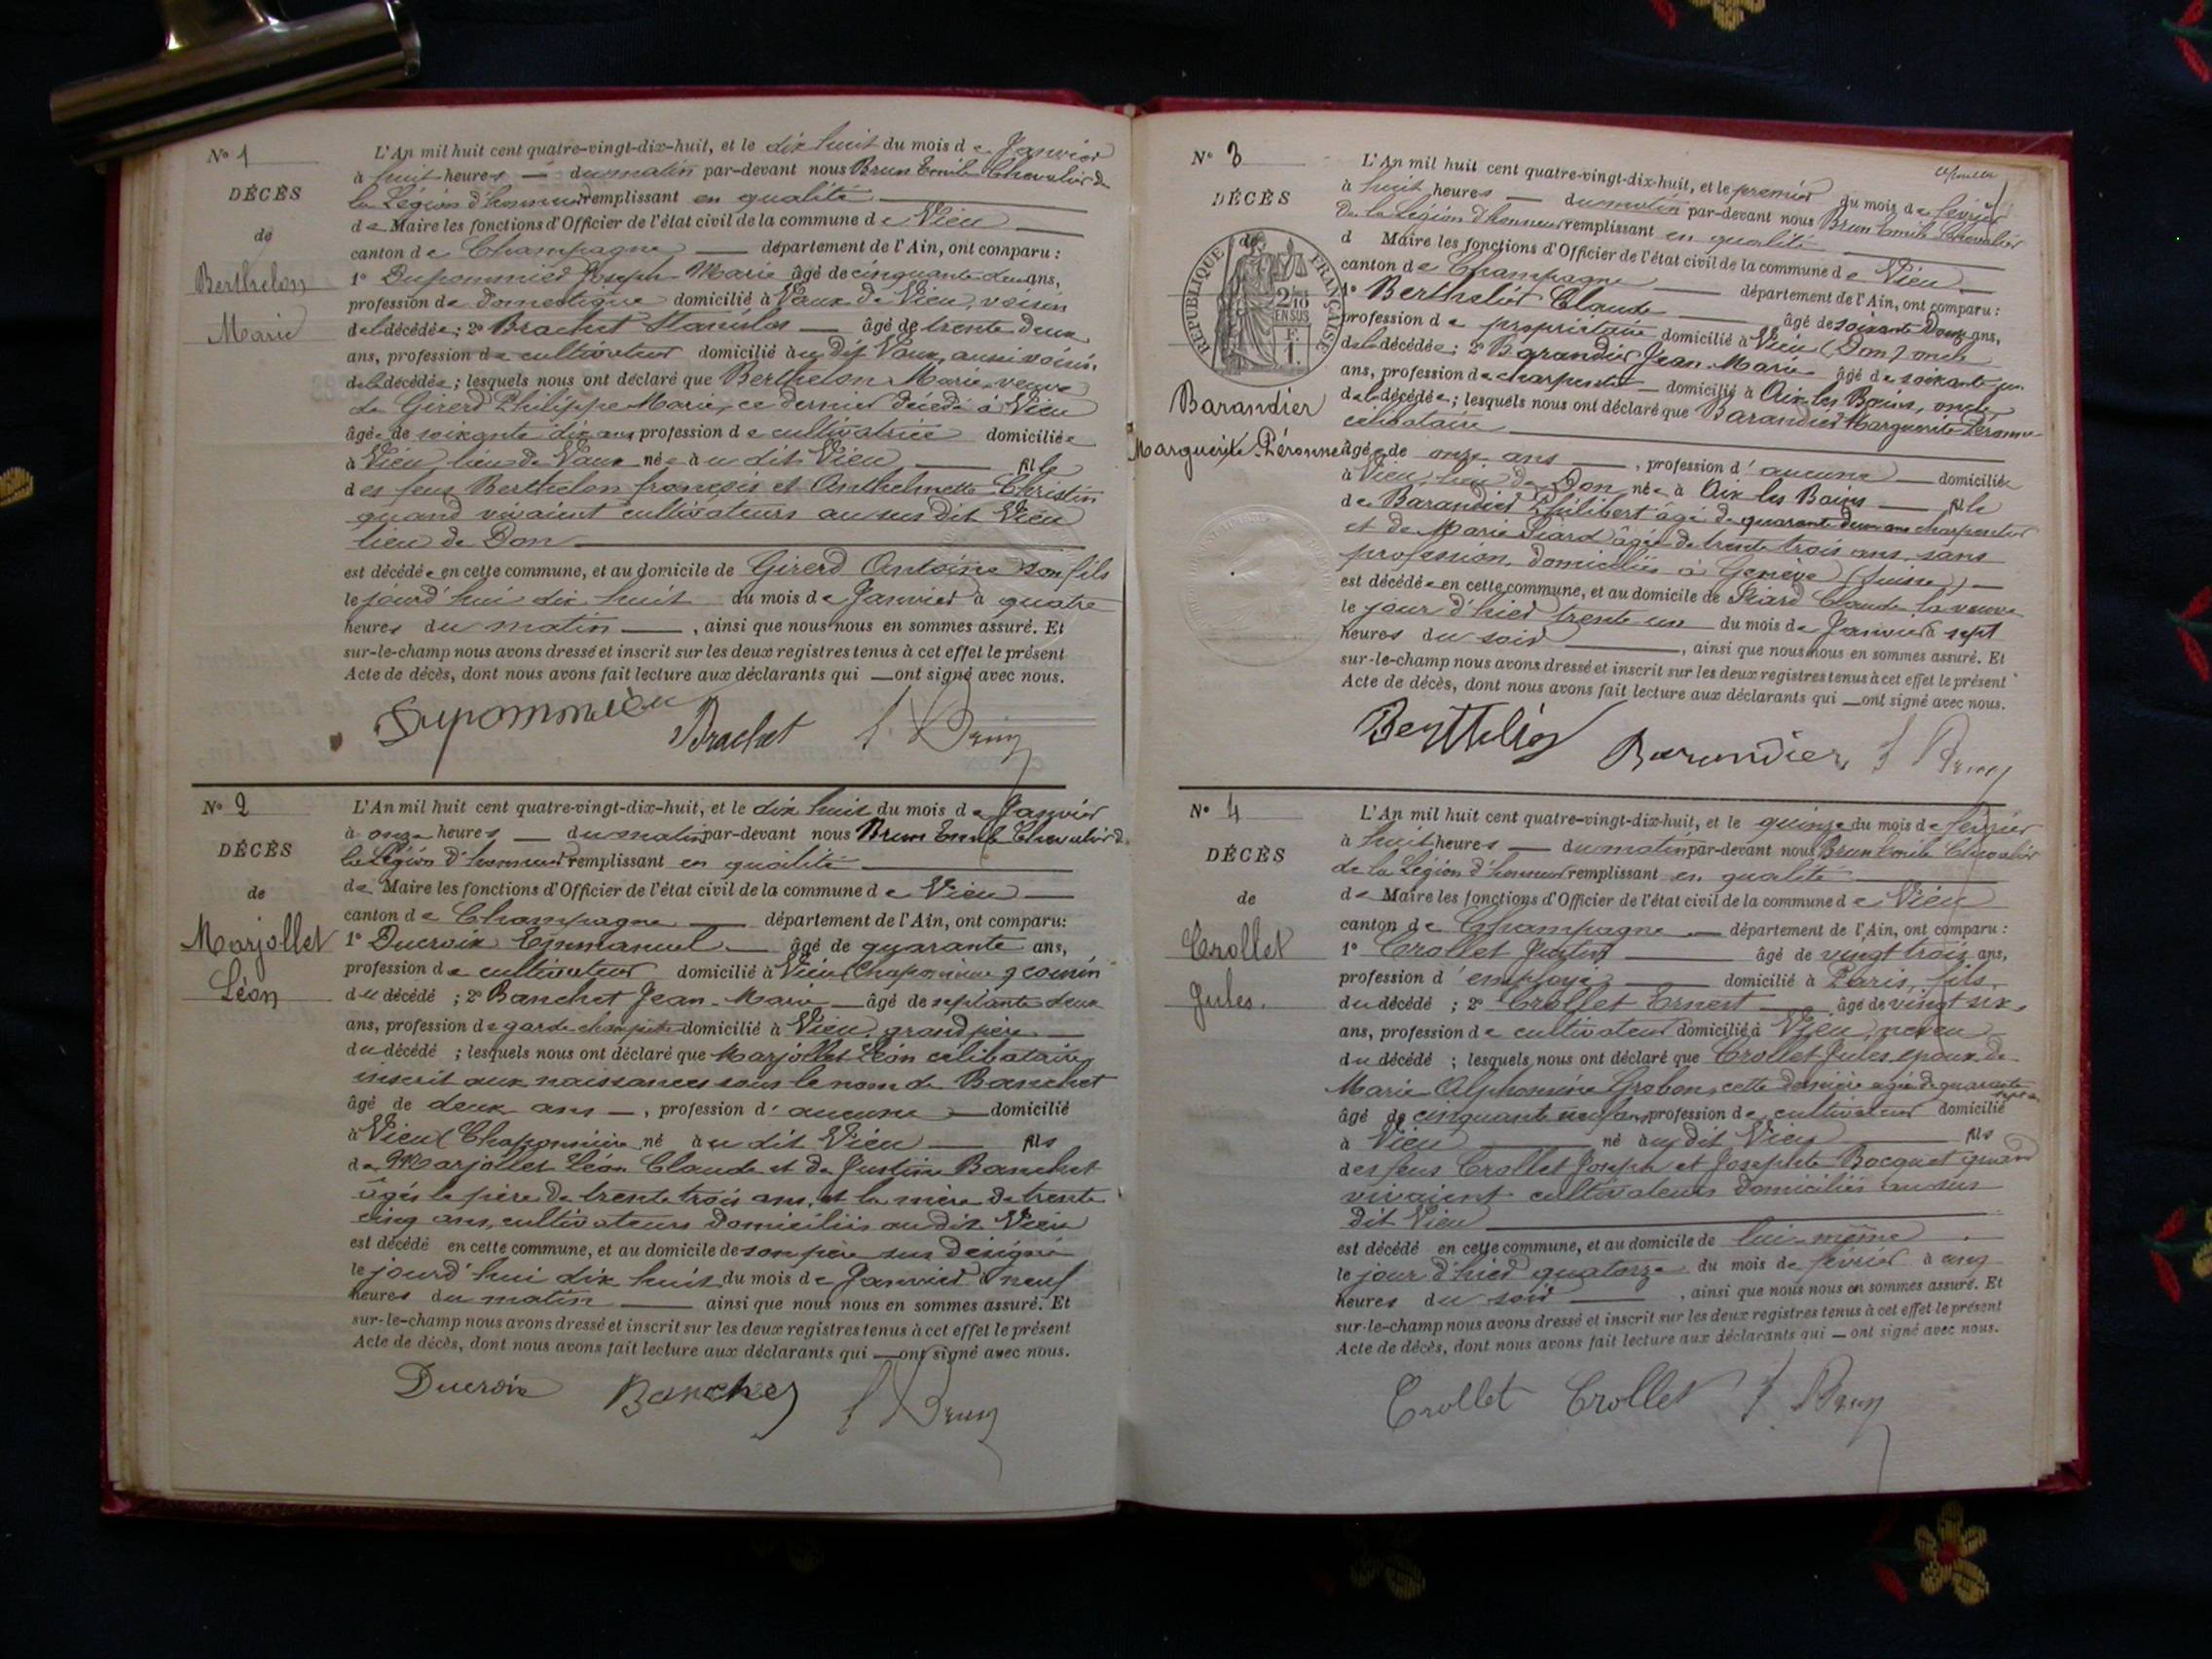 N° 1
DÉCÈS
de
Berthelon
Marie
L'An mil huit cent quatre-vingt-dix-huit, et le dix huit du mois de Janvier
à huit heures — du matin par-devant nous Brun Emile Chevalier de
la Légion d'honneur remplissant en qualité
de Maire les fonctions d'Officier de l'état civil de la commune de Vieu
canton de Champagne — département de l'Ain, ont comparu :
1° Dupommier Joseph Marie âgé de cinquante deux ans,
profession de domestique domicilié à Vaux de Vieu, voisin
de la décédée ; 2° Brachet Stanislas — âgé de trente deux
ans, profession de cultivateur domicilié au dit Vaux, aussi voisin
de la décédée ; lesquels nous ont déclaré que Berthelon Marie, veuve
de Girerd Philippe Marie, ce dernier décédé à Vieu
âgée de soixante dix ans profession de cultivatrice domiciliée
à Vieu lieu de Vaux née au dit Vieu — fille
des feus Berthelon françois et Anthelmette Christin
quand vivaient cultivateurs au sus dit Vieu
lieu de Don
est décédée en cette commune, et au domicile de Girerd Antoine son fils
le jourd'hui dix huit du mois de Janvier à quatre
heures du matin — , ainsi que nous nous en sommes assuré. Et
sur-le-champ nous avons dressé et inscrit sur les deux registres tenus à cet effet le présent
Acte de décès, dont nous avons fait lecture aux déclarants qui — ont signé avec nous.
Dupommier Brachet E Brun
N° 2
DÉCÈS
de
Marjollet
Léon
L'An mil huit cent quatre-vingt-dix-huit, et le dix huit du mois de Janvier
à onze heures — du matin par-devant nous Brun Emile Chevalier de
la Légion d'honneur remplissant en qualité
de Maire les fonctions d'Officier de l'état civil de la commune de Vieu —
canton de Champagne — département de l'Ain, ont comparu:
1° Ducroix Emmanuel — âgé de quarante ans,
profession de cultivateur domicilié à Vieu Chaponnière cousin
du décédé ; 2° Banchet Jean-Marie — âgé de septante deux
ans, profession de garde champêtre domicilié à Vieu, grand père
du décédé ; lesquels nous ont déclaré que Marjollet Léon célibataire
inscrit aux naissances sous le nom de Banchet
âgé de deux ans — , profession d' aucune — domicilié
à Vieu (Chaponnière né au dit Vieu — fils
de Marjollet Léon Claude et de Justine Banchet
âgés le père de trente trois ans, et la mère de trente
cinq ans, cultivateurs domiciliés au dit Vieu
est décédé en cette commune, et au domicile de son père sus désigné
le jourd'hui dix huit du mois de Janvier à neuf
heures du matin — ainsi que nous nous en sommes assuré. Et
sur-le-champ nous avons dressé et inscrit sur les deux registres tenus à cet effet le présent
Acte de décès, dont nous avons fait lecture aux déclarants qui — ont signé avec nous.
Ducroix Banchet E Brun
N° 3
DÉCÈS
de
RÉPUBLIQUE FRANÇAISE
2/10
EN SUS
F.
1.
Barandier
Marguerite-Péronne
L'An mil huit cent quatre-vingt-dix-huit, et le premier du mois de février
à huit heures — du matin par-devant nous Brun Emile Chevalier
de la Légion d'honneur remplissant en qualité
d Maire les fonctions d'Officier de l'état civil de la commune de Vieu —
canton de Champagne — département de l'Ain, ont comparu :
1° Berthelier Claude — âgé de soixante douze ans,
profession de propriétaire domicilié à Vieu (Don) oncle
de la décédée ; 2° Barandier Jean Marie âgé de soixante
ans, profession de charpentier — domicilié à Aix les Bains, oncle,
de la décédée ; lesquels nous ont déclaré que Barandier Marguerite Peronne
célibataire
âgée de onze ans — , profession d' aucune — domiciliée
à Vieu, lieu de Don née à Aix les Bains — fille
de Barandier Philibert âgé de quarante deux ans charpentier
et de Marie Siard âgée de trente trois ans, sans
profession, domiciliés à Genève (Suisse) —
est décédée en cette commune, et au domicile de Siard Claude la veuve
le jour d'hier trente un du mois de Janvier à sept
heures du soir — , ainsi que nous nous en sommes assuré. Et
sur-le-champ nous avons dressé et inscrit sur les deux registres tenus à cet effet le présent
Acte de décès, dont nous avons fait lecture aux déclarants qui — ont signé avec nous.
Berthelier Barandier E Brun
N° 4
DÉCÈS
de
Crollet
Jules.
L'An mil huit cent quatre-vingt-dix-huit, et le quinze du mois de février
à huit heures — du matin par-devant nous Brun Emile Chevalier
de la Légion d'honneur remplissant en qualité
de Maire les fonctions d'Officier de l'état civil de la commune de Vieu
canton de Champagne — département de l'Ain, ont comparu :
1° Crollet Justin — âgé de vingt trois ans,
profession d'employé — domicilié à Paris, fils,
du décédé ; 2° Crollet Ernest — âgé de vingt six
ans, profession de cultivateur domicilié à Vieu, neveu
du décédé ; lesquels nous ont déclaré que Crollet Jules, époux de
Marie Alphonsine Grobon, cette dernière agée de quarante sept ans
âgé de cinquante neuf ans profession de cultivateur domicilié
à Vieu — né au dit Vieu — fils
des feus Crollet Joseph et Josephte Bocquet quand
vivaient cultivateurs domiciliés au sus
dit Vieu
est décédé en cette commune, et au domicile de lui-même
le jour d'hier quatorze du mois de février à cinq
heures du soir — , ainsi que nous nous en sommes assuré. Et
sur-le-champ nous avons dressé et inscrit sur les deux registres tenus à cet effet le présent
Acte de décès, dont nous avons fait lecture aux déclarants qui — ont signé avec nous.
Crollet Crollet E Brun